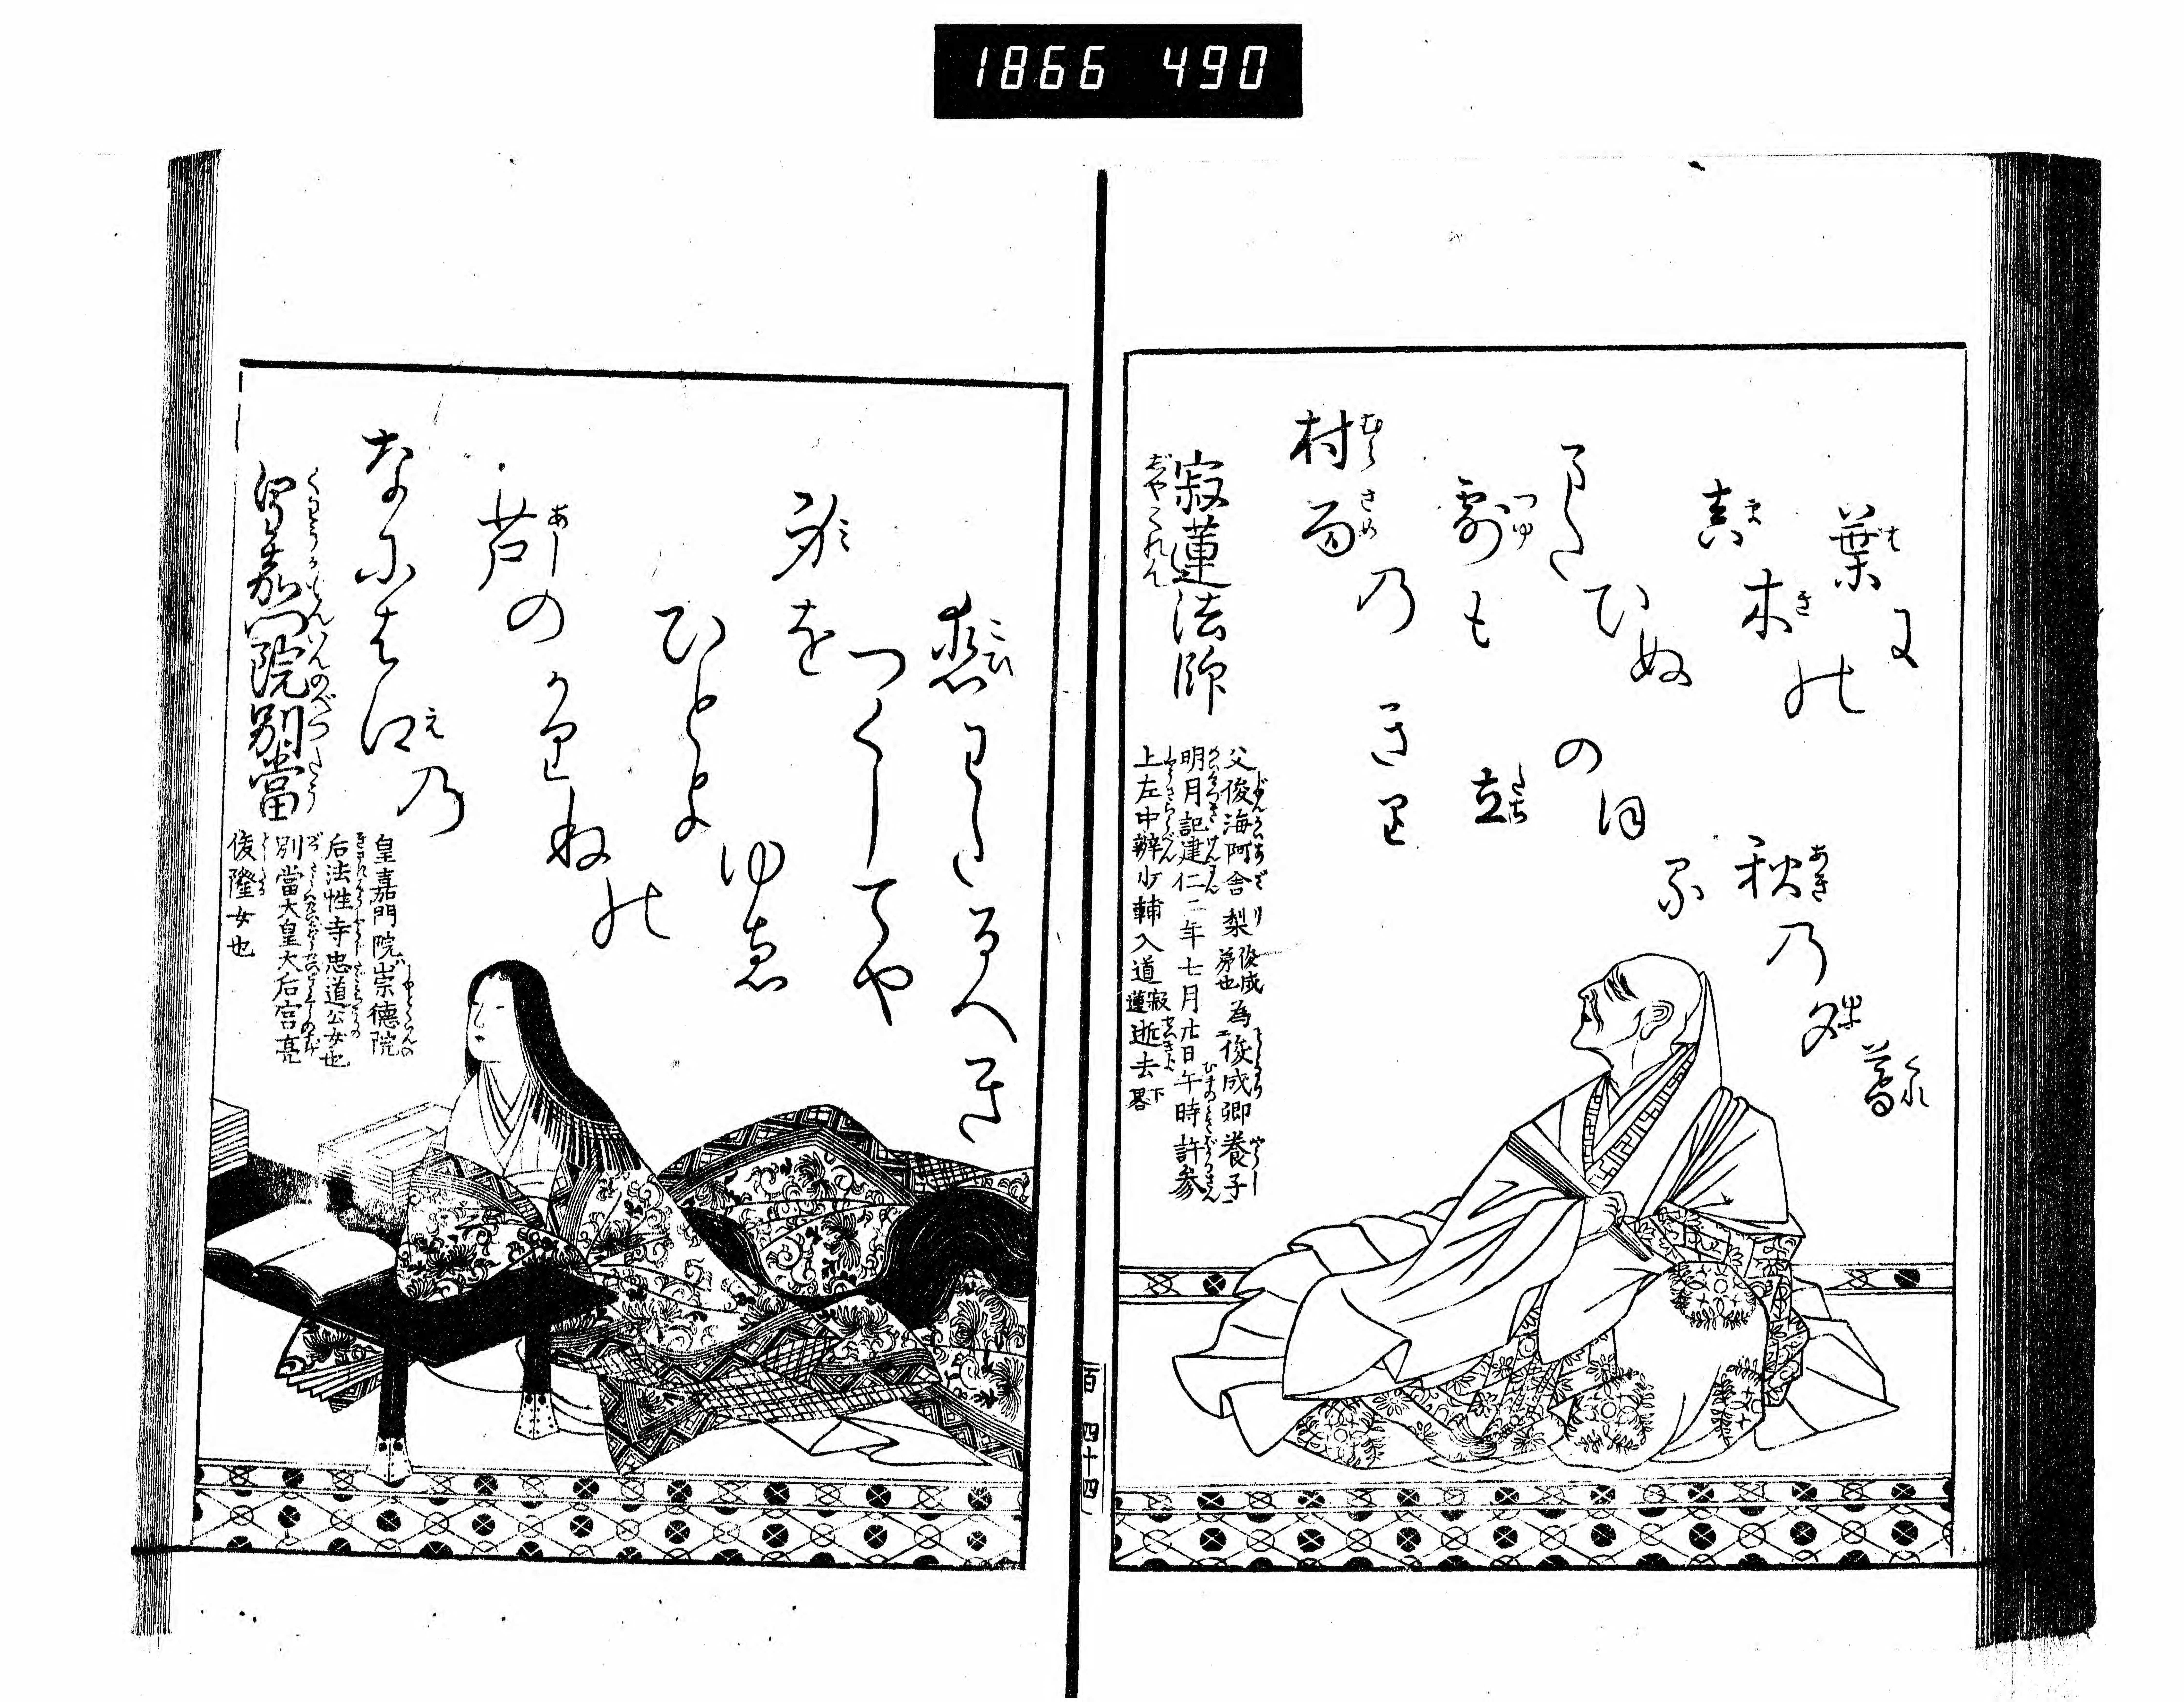 1866 490
村雨乃
露も
またひぬ
真木の
葉に
きり
立
のほる
秋乃
夕暮
寂蓮法師
父俊海阿舎梨俊成弟也為俊成卿養子
明月記建仁二年七月廿日午時許参
上左中辨少輔入道寂蓮逝去下畧
百 四十四
なにはえ乃
芦のかりねの
ひとよゆゑ
身を
つくしてや
恋わたるへき
皇嘉門院別當
皇嘉門院ハ崇徳院
后法性寺忠道公女也
別當大皇大后宮亮
俊隆女也